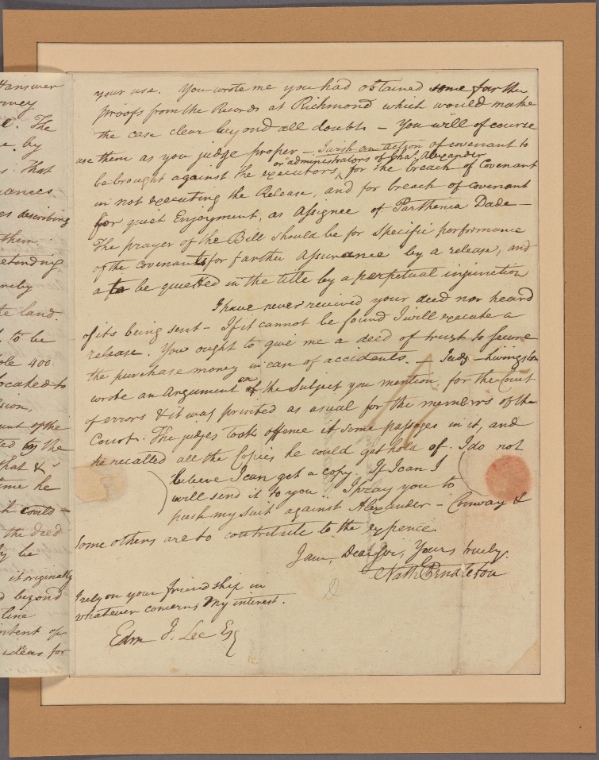 Hanswer
The
by
That
describing
them
land.
to be
400
located to
the
that &
he
could –
the deed
be
it originally
beyond
line
of
ideas for
your use. You wrote me you had obtained some farther
proofs from the Records at Richmond which would make
the case clear beyond all doubts – You will of course
use them as you judge proper – I wish an action of covenant to
be brought against the executors, for the breach of Covenant
or administrators of Chas. Alexander
in not executing the Release, and for breach of covenant
for quiet Enjoyment, as Assignee of Parthenia Dade –
The prayer of the Bill should be for specific performance
of the covenants for farther assurance by a release, and
a to be quieted in the title by a perpetual injunction
I have never received your deed nor heard
of its being sent – If it cannot be found I will execute a
release. You ought to give me a deed of trust to secure
the purchase money in case of accidents. – Judge Livingston
wrote an Argument on the Subject you mention, for the Court
of errors & it was printed as usual for the members of the
Court. The judges took offence at some passages in it, and
he recalled all the Copies he could get hold of. I do not
believe I can get a copy. If I can I
will send it to you. I pray you to
push my suit against Alexander – Conway &
some others are to contribute to the expence
I am, Dear Sir, Yours truly
Nath Pendleton
I rely on your friendship in
whatever concerns my interest.
Edm J. Lee Esq